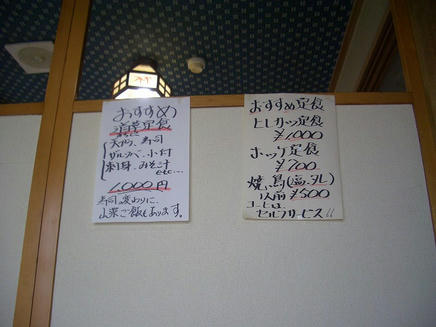 おすすめ
定食
天ぷら、寿司
サラダ、小付
刺身、みそ汁
etc...
1,000円
寿司の変わりに、
山菜ご飯もあります。
おすすめ定食
ヒレカツ定食
¥1,000
ホッケ定食
¥700
焼鳥(塩、タレ)
1人前 ¥500
コーヒーは
セルフサービス!!